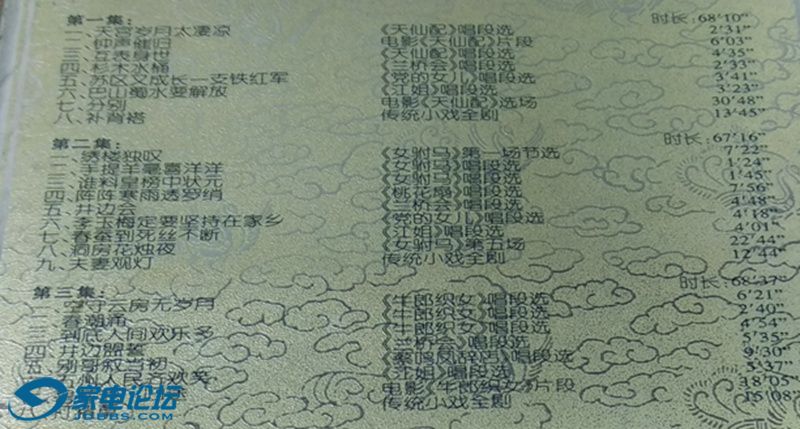 第一集： 时长:68'10"
一、天宫岁月太凄凉 《天仙配》唱段选 2'31"
二、钟声催归 电影《天仙配》片段 6'03"
三、互表身世 《天仙配》唱段选 4'35"
四、杉木水桶 《兰桥会》唱段选 2'33"
五、苏区又成长一支铁红军 《党的女儿》唱段选 3'41"
六、巴山蜀水要解放 《江姐》唱段选 3'23"
七、分别 电影《天仙配》选场 30'48"
八、补背褡 传统小戏全剧 13'45"
第二集： 时长:67'16"
一、绣楼独叹 《女驸马》第一场节选 7'22"
二、手提羊毫喜洋洋 《女驸马》唱段选 1'24"
三、谁料皇榜中状元 《女驸马》唱段选 1'45"
四、阵阵寒雨透罗绡 《桃花扇》唱段选 7'56"
五、井边会 《兰桥会》唱段选 4'48"
六、玉梅定要坚持在家乡 《党的女儿》唱段选 4'18"
七、春蚕到死丝不断 《江姐》唱段选 4'01"
八、洞房花烛夜 《女驸马》第五场 22'44"
九、夫妻观灯 传统小戏全剧 12'44"
第三集： 时长:68'37"
一、空守云房无岁月 《牛郎织女》唱段选 6'21"
二、春潮涌 《牛郎织女》唱段选 2'40"
三、到底人间欢乐多 《牛郎织女》唱段选 4'54"
四、井边盟誓 《兰桥会》唱段选 5'35"
五、别哥叙当初 《蔡鸣凤辞店》唱段选 9'30"
人民齐欢笑 《江姐》唱段选 5'37"
电影《牛郎织女》片段 18'05"
传统小戏全剧 15'08"
家电论坛
JDBBS.COM